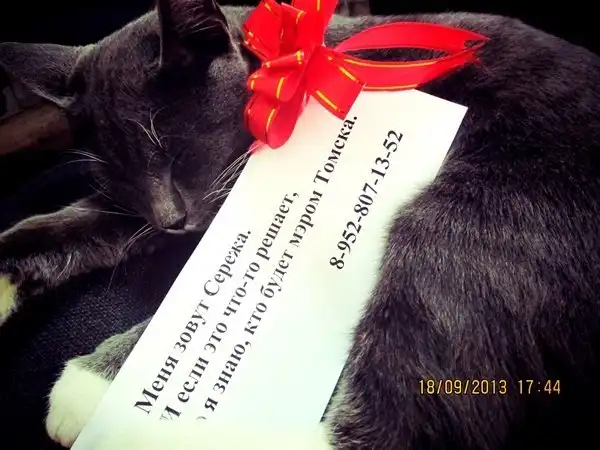 Меня зовут Сережа.
И если это что-то решает,
я знаю, кто будет мэром Томска.
8-952-807-13-52
18/09/2013 17:44